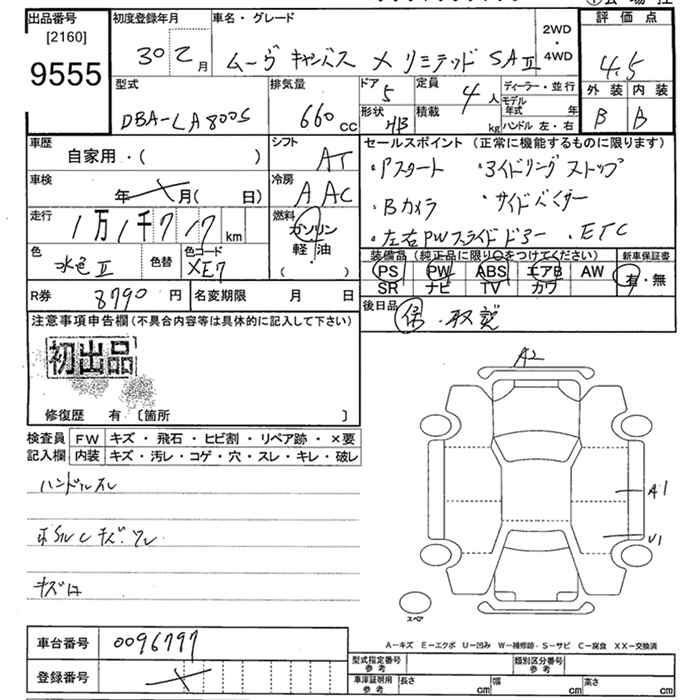 出品番号
[2160]
9555
初度登録年月
30 年 7 月
車名・グレード
ムーヴ キャンバス メリミテッド SAⅢ
2WD
・
4WD
評価点
4.5
外装 内装
B B
型式
DBA-LA800S
排気量
660 CC
ドア 5
形状 HB
定員 4 人
積載 kg
ディーラー・並行
モデル年式 年
ハンドル 左・右
車歴
自家用・( )
シフト
AT
車検
年 月( 日)
冷房
AAC
走行
1万1千717 km
燃料
ガソリン
軽・油
( )
色
水色Ⅱ
色替
色コード
XE7
R券 8790 円
名変期限 月 日
セールスポイント(正常に機能するものに限ります)
・Pスタート ・アイドリングストップ
・Bカメラ ・サイドバイザー
・左右PWスライドドアー ・ETC
装備品(純正品に限り○をつけてください)
新車保証書
PS PW ABS エアB AW
SR ナビ TV カワ
有・無
後日品
保・取説
注意事項申告欄(不具合内容等は具体的に記入して下さい)
初出品
修復歴 有〔箇所 〕
検査員 FW キズ・飛石・ヒビ割・リペア跡・×要
記入欄 内装 キズ・汚レ・コゲ・穴・スレ・キレ・破レ
ハンドルスレ
キズ
A2
A1
U1
スペア
A=キズ E=エクボ U=凹み W=補修跡・S=サビ C=腐食 XX=交換済
車台番号 0096797
登録番号
型式指定番号
参考
類別区分番号
参考
車庫証明用
参考
長さ cm 幅 cm 高さ cm